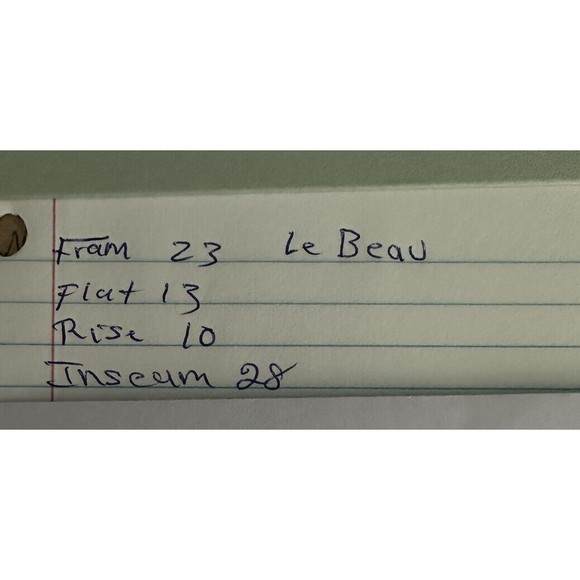 Fram 23 Le Beau
Flat 13
Rise 10
Inseam 28